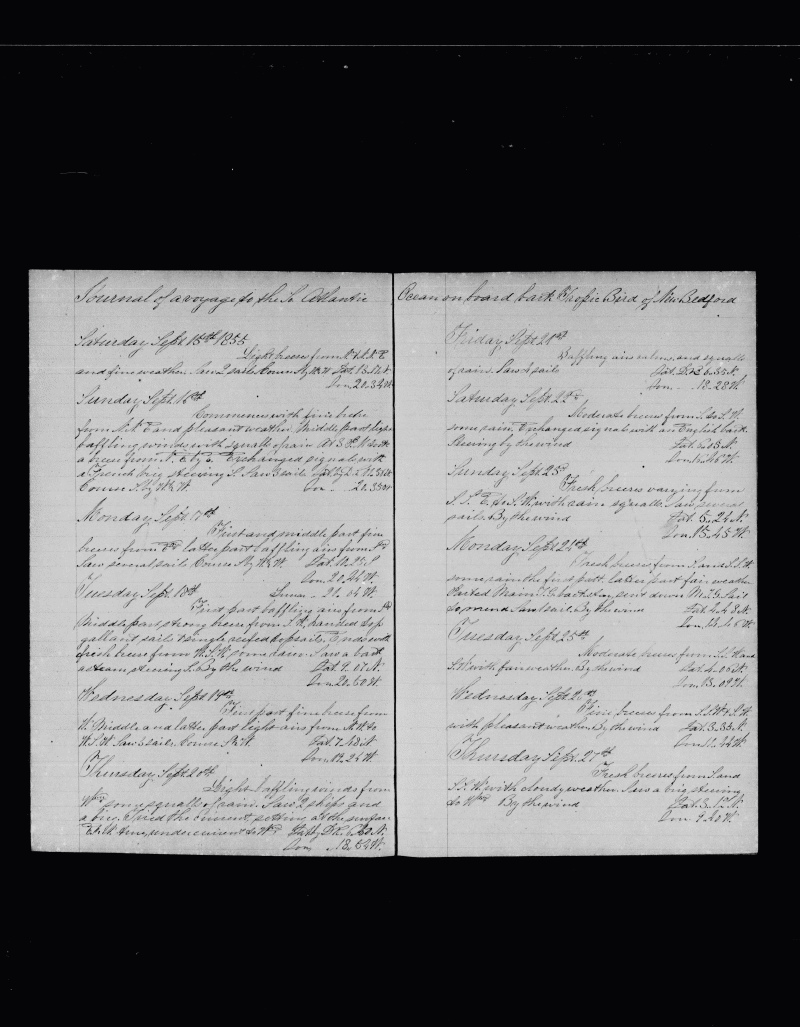 Journal of a voyage to the So Atlantic
Saturday Sept 15th 1855
Light breeze from
and fine weather. Saw 2 sails Course S by W
Lon. 20.34 W
Sunday Sept. 16th
Commences with fine breeze
from N.E and pleasant weather Middle part light
baffling winds with squalls of rain At 8 P.M. took
a breeze from S. E. by S. Exchanged signals with
a French brig steering S. Saw 3 sails
Course S. by W
Monday Sept. 17th
First and middle part fine
breeze from latter part baffling airs from
Saw several sails Course S by W Lat. 11.
Lon 20.44 W.
Tuesday Sept. 18th Lunar - 21.04 W.
First part baffling airs from
Middle part strong breeze from S.W, handed top
gallant sails & single reefed topsails. Ends with
fresh breeze from W.S.W. some rain. Saw a bark
astearn steering S. By the wind Lat. 9.
Lon. 20.50 W.
Wednesday Sept. 19th
First part fine breeze from
W. Middle and latter part light airs from N.W. to
W.S.W. Saw 3 sails. Course Lat. 7.48 N
Lon. 19.24 W.
Thursday Sept. 20th
Light baffling winds from
Wtd some squalls of rain. Saw 2 ships and
a brig. Tried the current, setting at the surface
under current to Wd Lat by D.R.
Lon. 18.52 W.
Ocean on board bark Tropic Bird of New Bedford
Friday Sept. 21st
Baffling airs calms, and squalls
of rain. Saw 4 sails Lat. D.R. 6.35 N.
Lon. - 18-28 W.
Saturday Sept. 22d
Moderate breeze from
some rain. Exchanged signals with an English bark
Steering by the wind
Sunday Sept. 23d
Fresh breezes varying from
S.S.E. to S.W. with rain squalls. Saw several
sails. By the wind Lat. 5.24 N.
Lon. 15.45 W.
Monday Sept. 24th
Fresh breezes from S. and S.S.W
some rain the first part, latter part fair weather
Parted Main T.G. backstay, sent down M.T.G. Sail
to mend. Saw 1 sail. By the wind Lat. 4.48 N.
Tuesday Sept. 25th
Moderate breeze from S.S.W and
S.W. with fair weather. By the wind Lat. 4.05 N.
Lon. 13.09 W.
Wednesday Sept. 26th
Fine breezes from S.S.W & S.W.
with pleasant weather. By the wind Lat. 3.33 N.
Lon. 11.44 W.
Thursday Sept. 27th
Fresh breezes from S. and
S.S.W. with cloudy weather. Saw a brig steering
to Wtd By the wind Lat. 3.12 N.
Lon 9.20 W.